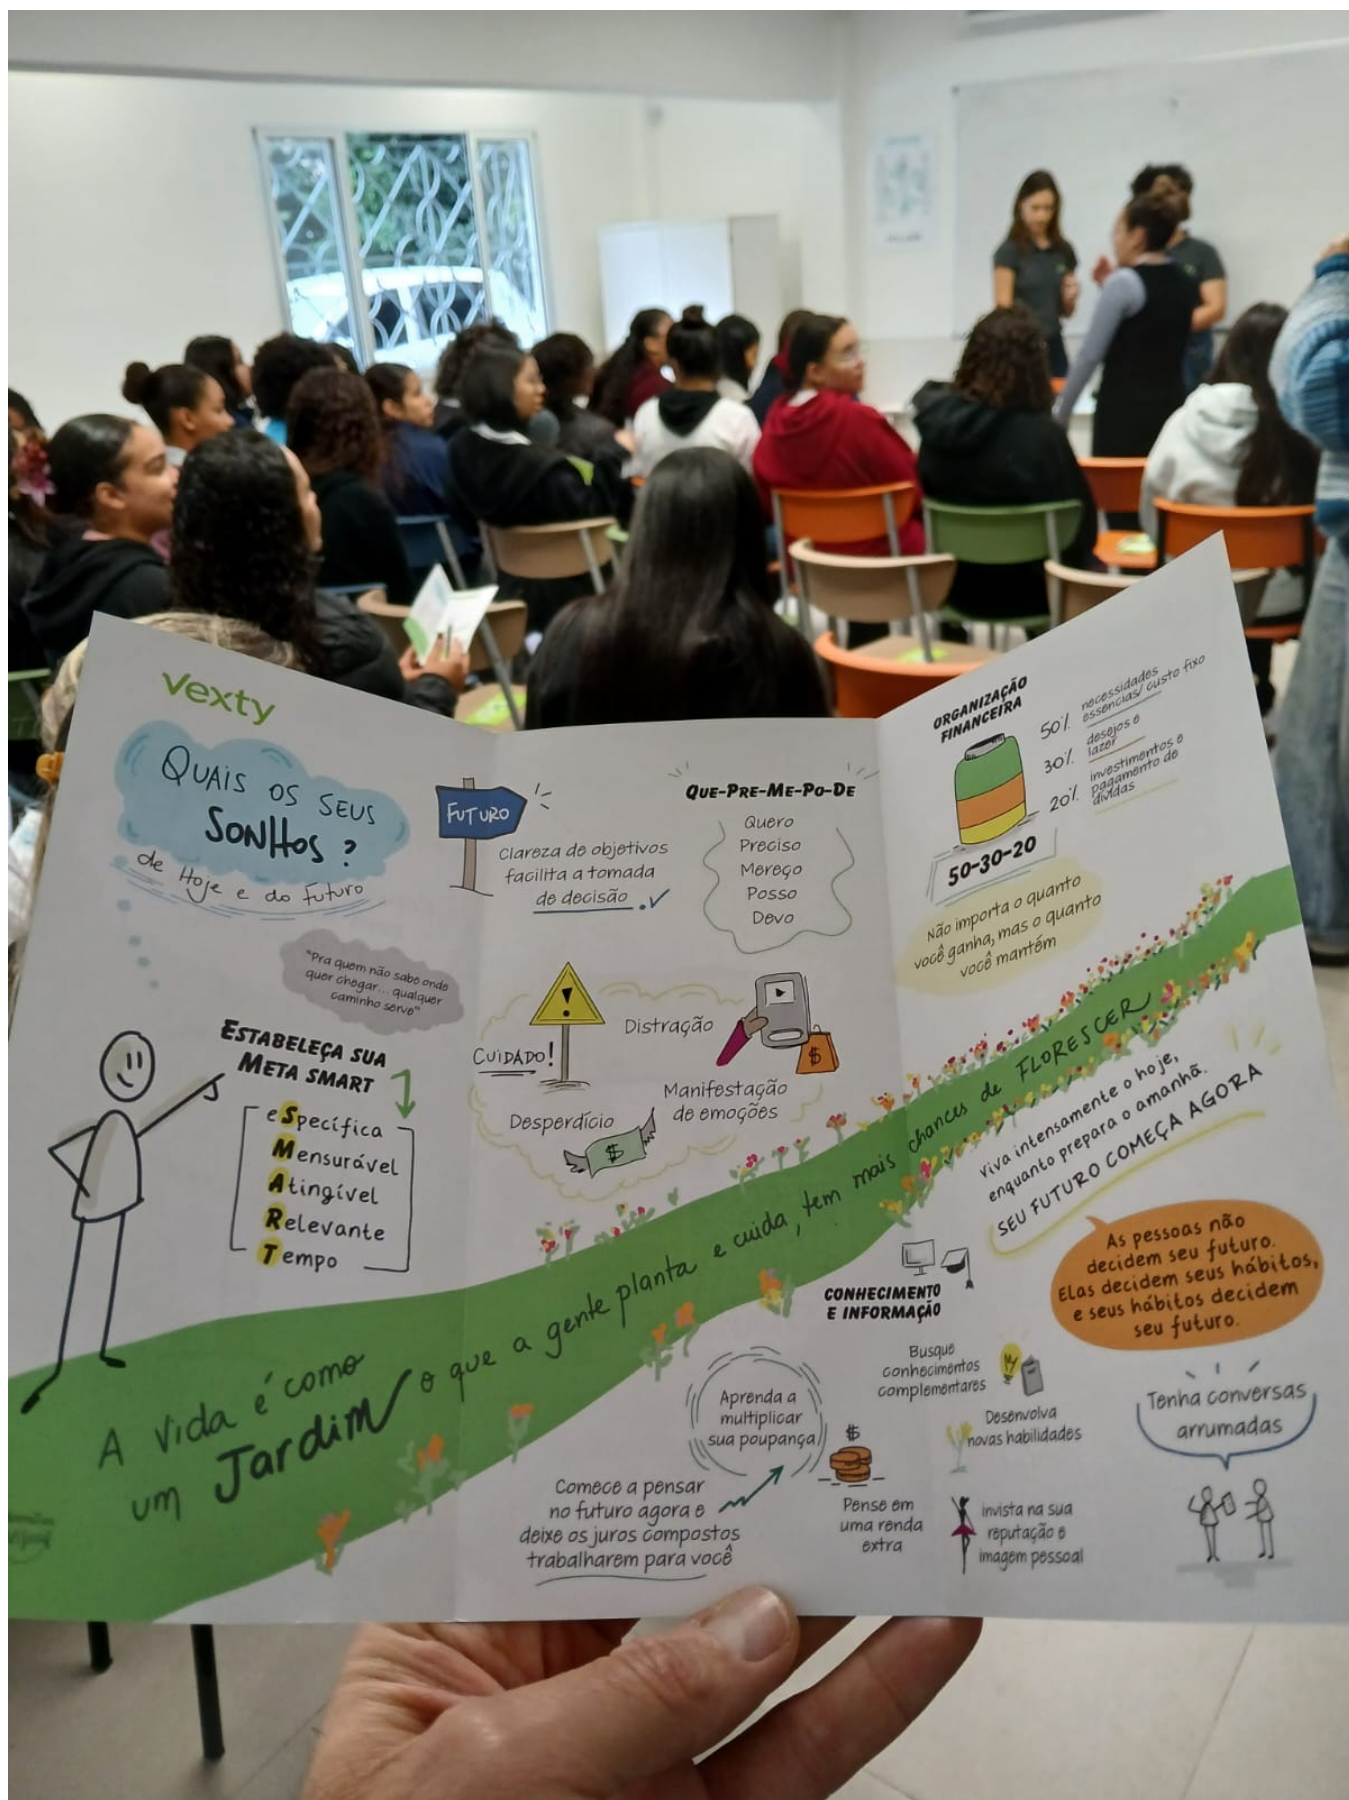 vexty
QUAIS OS SEUS
SONHOS ?
de Hoje e do Futuro
"Pra quem não sabe onde
quer chegar... qualquer
caminho serve"
ESTABELEÇA SUA
META SMART
eSpecífica
Mensurável
Atingível
Relevante
Tempo
FUTURO
Clareza de objetivos
facilita a tomada
de decisão
QUE-PRE-ME-PO-DE
Quero
Preciso
Mereço
Posso
Devo
CUIDADO!
Distração
Manifestação
de emoções
Desperdício
$
$
ORGANIZAÇÃO
FINANCEIRA
50% necessidades
essencias/ custo fixo
30% desejos e
lazer
20% investimentos e
pagamento de
dívidas
50-30-20
Não importa o quanto
você ganha, mas o quanto
você mantém
A vida é como
um Jardim o que a gente planta e cuida, tem mais chances de FLORESCER
viva intensamente o hoje,
enquanto prepara o amanhã.
SEU FUTURO COMEÇA AGORA
As pessoas não
decidem seu futuro.
Elas decidem seus hábitos,
e seus hábitos decidem
seu futuro.
CONHECIMENTO
E INFORMAÇÃO
Busque
conhecimentos
complementares
Desenvolva
novas habilidades
invista na sua
reputação e
imagem pessoal
Aprenda a
multiplicar
sua poupança
Comece a pensar
no futuro agora e
deixe os juros compostos
trabalharem para você
$
Pense em
uma renda
extra
Tenha conversas
arrumadas